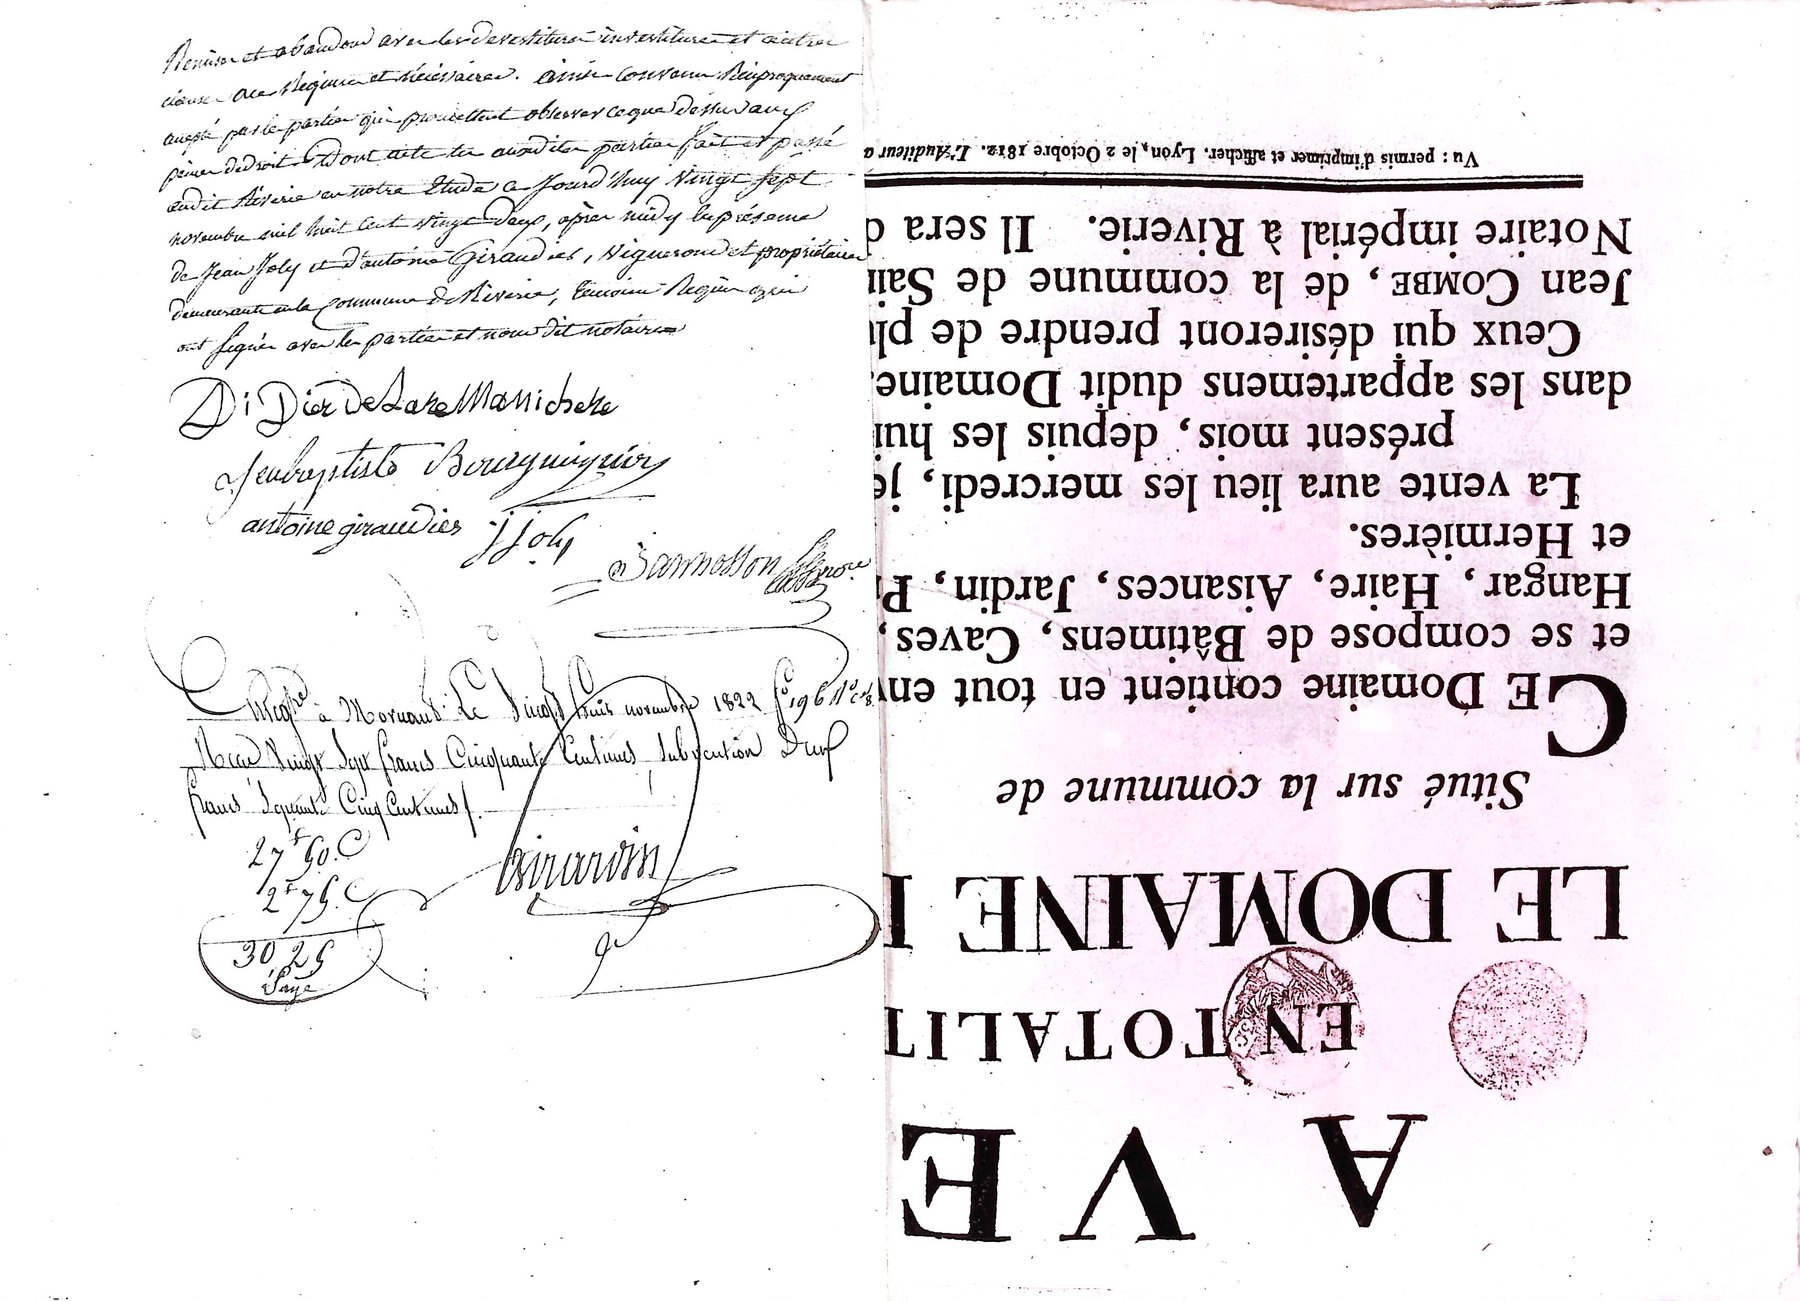 Remise et abandon avec les devestitures investitures et autres
clauses ace Requises et nécéssaires. ainsi convenu Réciproquement
accepté par les parties qui promettent observer ce que dessus aux
peines de droit. Dont acte lu auxdites parties fait et passé
audit Riverie en notre Etude ce Jourd'huy vingt sept
novembre mil huit cent vingt deux, après midy En présence
de Jean Joly et d'antoine Giraudier, vignerons et propriétaires
demeurants en la Commune de Riverie, témoins Requis qui
ont signés avec les parties et nous dit notaire
DiDier De Lare
Jenbaptiste Bourguignon
antoine giraudier J Joly
à Mornant Le Vingt huit novembre 1822
Vingt Sept francs Cinquante Centimes, Subvention Deux
francs Soixante Cinq Centimes
27f 50.C
2f 75.C
30 25
Girardin
A VE
EN TOTALIT
LE DOMAINE
Situé sur la commune de
CE Domaine contient en tout env
et se compose de Bâtimens, Caves,
Hangar, Haire, Aisances, Jardin, P
et Hermières.
La vente aura lieu les mercredi, je
présent mois, depuis les hui
dans les appartemens dudit Domaine.
Ceux qui désireront prendre de plu
Jean COMBE, de la commune de Sain
Notaire impérial à Riverie. Il sera d
Vu : permis d'imprimer et afficher. Lyon, le 2 Octobre 1812. L'Auditeur a